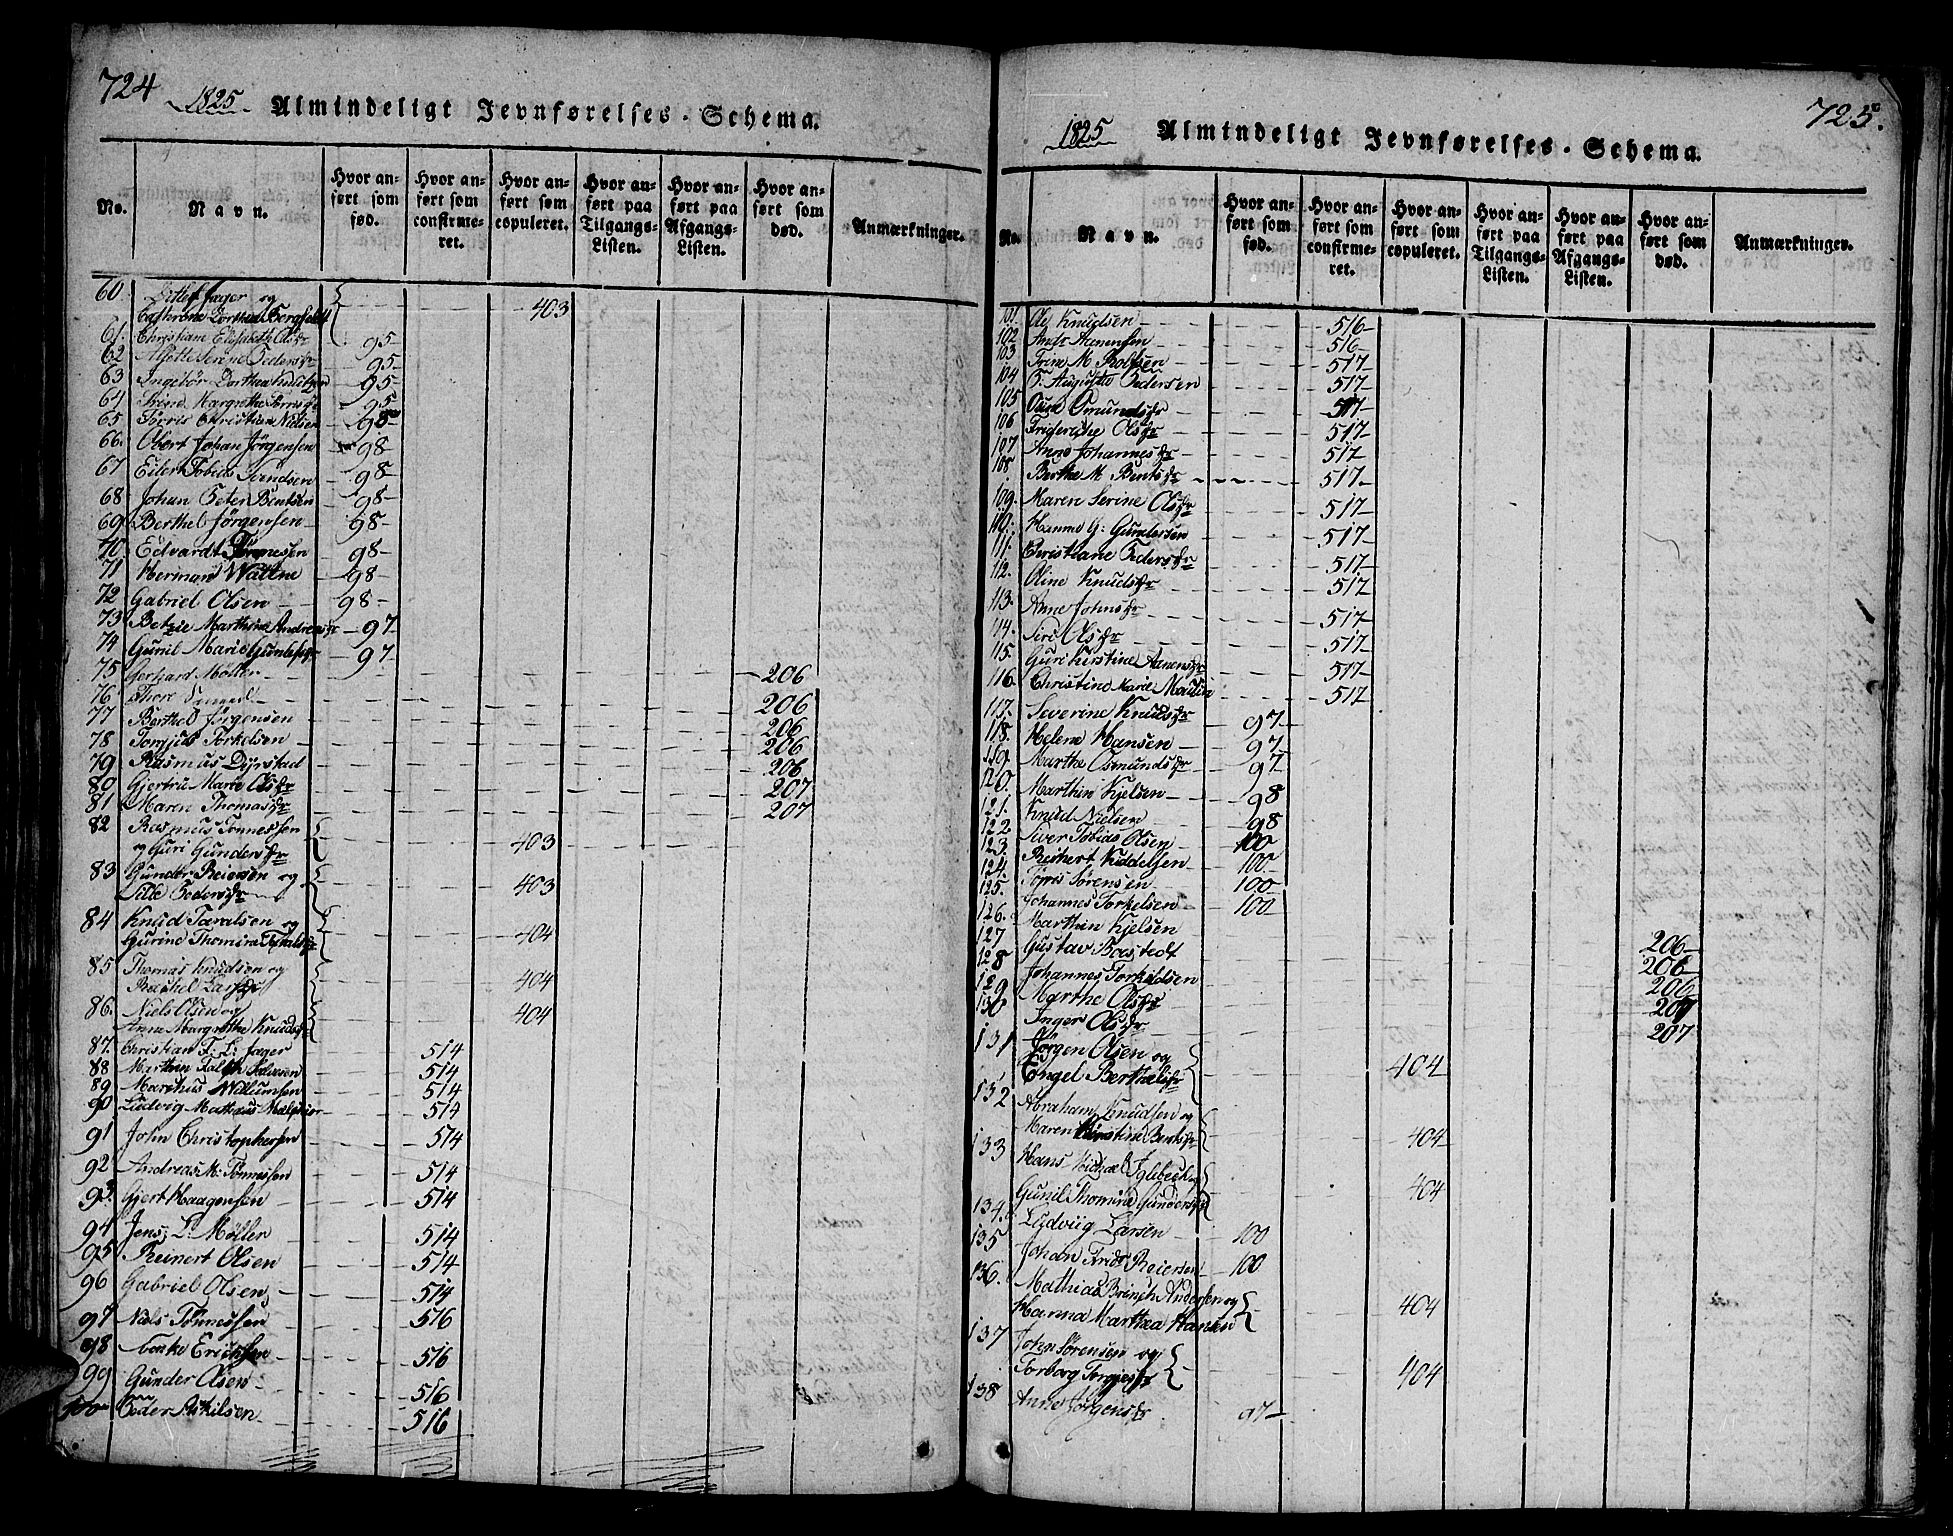 724
1825
Almindeligt Jevnførelses-Schema.
No.
Navn.
Hvor anført som fød.
Hvor anført som confirmeret.
Hvor anført som copuleret.
Hvor anført paa Tilgangs-Listen.
Hvor anført paa Afgangs-Listen.
Hvor anført som død.
Anmærkninger.
60. Ditlef Jæger og
Cathrine Dorthea Bergfeldt 403
61. Christian Elisabeth Olsdr 95
62 Serine Pedersdr 95
63 Ingebor Dorthea 95
64 Trine Margrethe 95
65 Tørris Christian Nielsen 98
66. Obert Johan Jørgensen 98
67 Eilert Tobias Svendsen 98
68 Johan Peter Bentsen 98
69 Berthel Jørgensen 98
70 Edvardt Tønnesen 98
71 Herman Wattne 98
72 Gabriel Olsen 98
73 Betzie Marthine Andreasdr 97
74 Gunil Marie 97
75 Gerhard Møller 206
76 Thore 206
77 Berthel Jørgensen 206
78 Torgjus Torkelsen 206
79 Rasmus Dyrstad 206
80 Gjertru Marie Olsdr 207
81 Maren Thomasdr 207
82 Rasmus Tønnessen
og Guri Gundersdr 403
83 Gunder Reiersen og
Sille Pedersdr 403
84 Knud Taralsen og
Gurine Thomine 404
85 Thomas Knudsen og
Rachel Larsdr 404
86. Niels Olsen og
Anne Margrethe Knudsdr 404
87. Christian F: L: Jæger 514
88 Marthin 514
89 Marthus Willumsen 514
90 Ludvig Mathæus 514
91 John Christophersen 514
92 Andreas M: Tønnessen 514
93 Gjert Haagensen 514
94 Jens L: Møller 514
95 Reinert Olsen 514
96 Gabriel Olsen 514
97 Niels Tønnessen 516
98 Erichsen 516
99 Gunder Olsen 516
100 Peder Askilsen 516
725.
1825
Almindeligt Jevnførelses-Schema.
No.
Navn.
Hvor anført som fød.
Hvor anført som confirmeret.
Hvor anført som copuleret.
Hvor anført paa Tilgangs-Listen.
Hvor anført paa Afgangs-Listen.
Hvor anført som død.
Anmærkninger.
101 Ole Knudsen 516
102 Hansen 516
103 Trine M. Rolfsen 517
104 P: Auguste Pedersen 517
105 Osmundsdr 517
106 Frideriche Olsdr 517
107 Anne Johannesdr 517
108 Berthe M. Bentsdr 517
109. Maren Serine Olsdr 517
110. Hanne G: Gundersen 517
111. Christiane Pedersdr 517
112. Oline Knudsdr 517
113. Anne Johnsdr 517
114. Siri Olsdr 517
115. Guri Kirstine Aanensdr 517
116. Christine Marie 517
117. Severine Knudsdr 97
118. Helene Hansen 97
119. Marthe Osmundsdr 97
120. Marthin Kjelsen 98
121. Knud Nielsen 98
122 Siver Tobias Olsen 100
123. Reinert Kiddelsen 100
124. Tøris Sørensen 100
125. Johannes Torkelsen 100
126. Marthin Kjelsen 206
127 Gustav Boestedt 206
128 Johannes Torkildsen 206
129 Marthe Olsdr 207
130 Inger Olsdr 207
131 Jørgen Olsen og
Engel Berthelsdr 404
132 Abraham Knudsen og
Maren Kirstine Bentsdr 404
133 Hans Michael Iglebech og
Gunil Thomine Gundersdr 404
134. Ludvig Larsen 100
135 Johan Fridr Reiersen 100
136. Mathias Brinch Andersen og
Hanna Marthea Hansen 404
137 John Sørensen og
Torborg Torgiesdr 404
138 Anne Jørgensdr 97